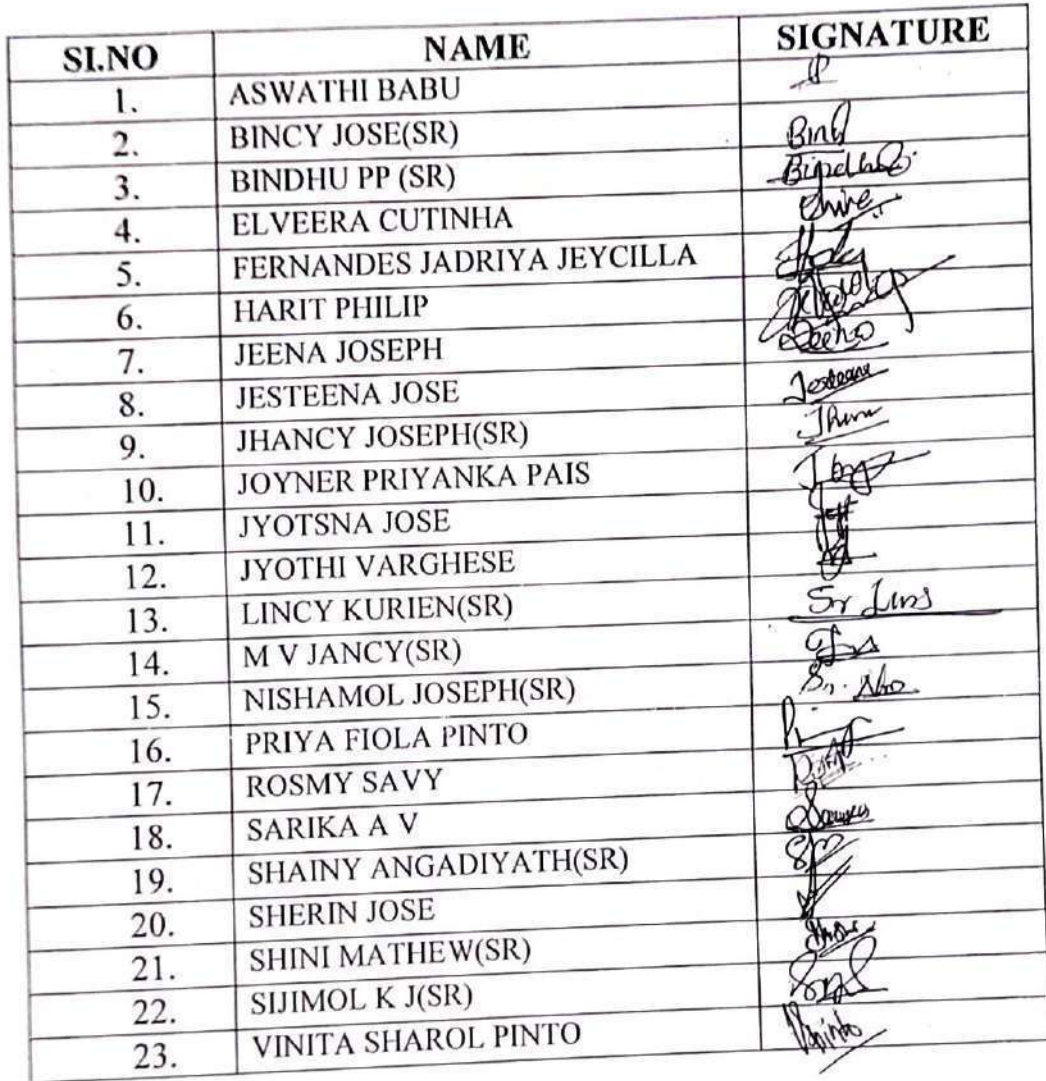 SI.NO NAME SIGNATURE
1. ASWATHI BABU
2. BINCY JOSE(SR)
3. BINDHU PP (SR)
4. ELVEERA CUTINHA
5. FERNANDES JADRIYA JEYCILLA
6. HARIT PHILIP
7. JEENA JOSEPH
8. JESTEENA JOSE
9. JHANCY JOSEPH(SR)
10. JOYNER PRIYANKA PAIS
11. JYOTSNA JOSE
12. JYOTHI VARGHESE
13. LINCY KURIEN(SR) Sr
14. M V JANCY(SR)
15. NISHAMOL JOSEPH(SR) Sr.
16. PRIYA FIOLA PINTO
17. ROSMY SAVY
18. SARIKA A V
19. SHAINY ANGADIYATH(SR)
20. SHERIN JOSE
21. SHINI MATHEW(SR)
22. SIJIMOL K J(SR)
23. VINITA SHAROL PINTO